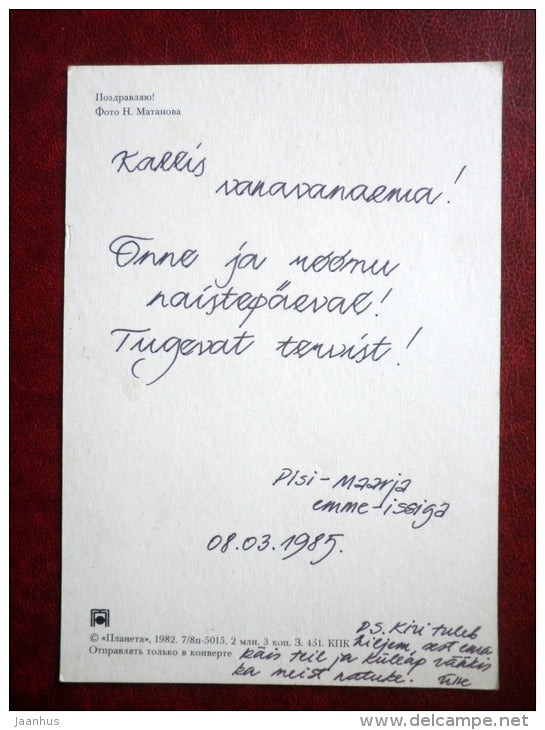 Поздравляю!
Фото Н. Матанова
Kallis
vanavanaema!
Õnne ja rõõmu
naistepäeval!
Tugevat tervist!
Pisi-Maarja
emme-issiga
08.03.1985.
© «Планета», 1982. 7/8п-5015. 2 млн. 3 коп. З. 451. КПК
Отправлять только в конверте
P.S. Kiri tuleb
hiljem, sest ema
käis teil ja küllap rääkis
ka meist natuke.
jaanhus
www.delcampe.net